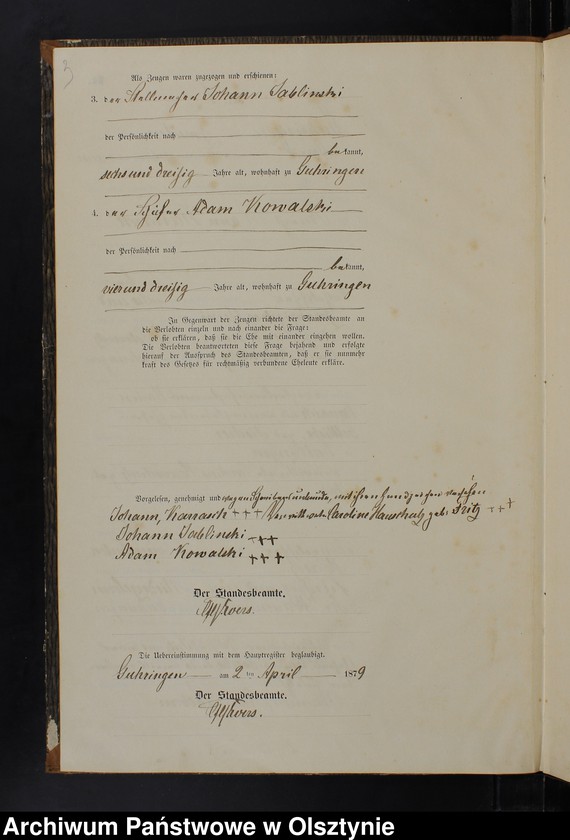 3
Als Zeugen waren zugezogen und erschienen:
3. der Stellmacher Johann Sablinski
der Persönlichkeit nach
bekannt,
sechsund dreißig Jahre alt, wohnhaft zu Guhringen
4. der Schäfer Adam Kowalski
der Persönlichkeit nach
bekannt,
vierund dreißig Jahre alt, wohnhaft zu Guhringen
In Gegenwart der Zeugen richtete der Standesbeamte an
die Verlobten einzeln und nach einander die Frage:
ob sie erklären, daß sie die Ehe mit einander eingehen wollen.
Die Verlobten beantworteten diese Frage bejahend und erfolgte
hierauf der Ausspruch des Standesbeamten, daß er sie nunmehr
kraft des Gesetzes für rechtmäßig verbundene Eheleute erkläre.
Vorgelesen, genehmigt und wegen Schreibensunkunde, mit ihren Handzeichen versehen
Johann Karrasch +++ Caroline geb: Fritz +++
Johann Sablinski +++
Adam Kowalski +++
Der Standesbeamte.
Die Uebereinstimmung mit dem Hauptregister beglaubigt.
Guhringen am 2 ten April 1879
Der Standesbeamte.
Archiwum Państwowe w Olsztynie